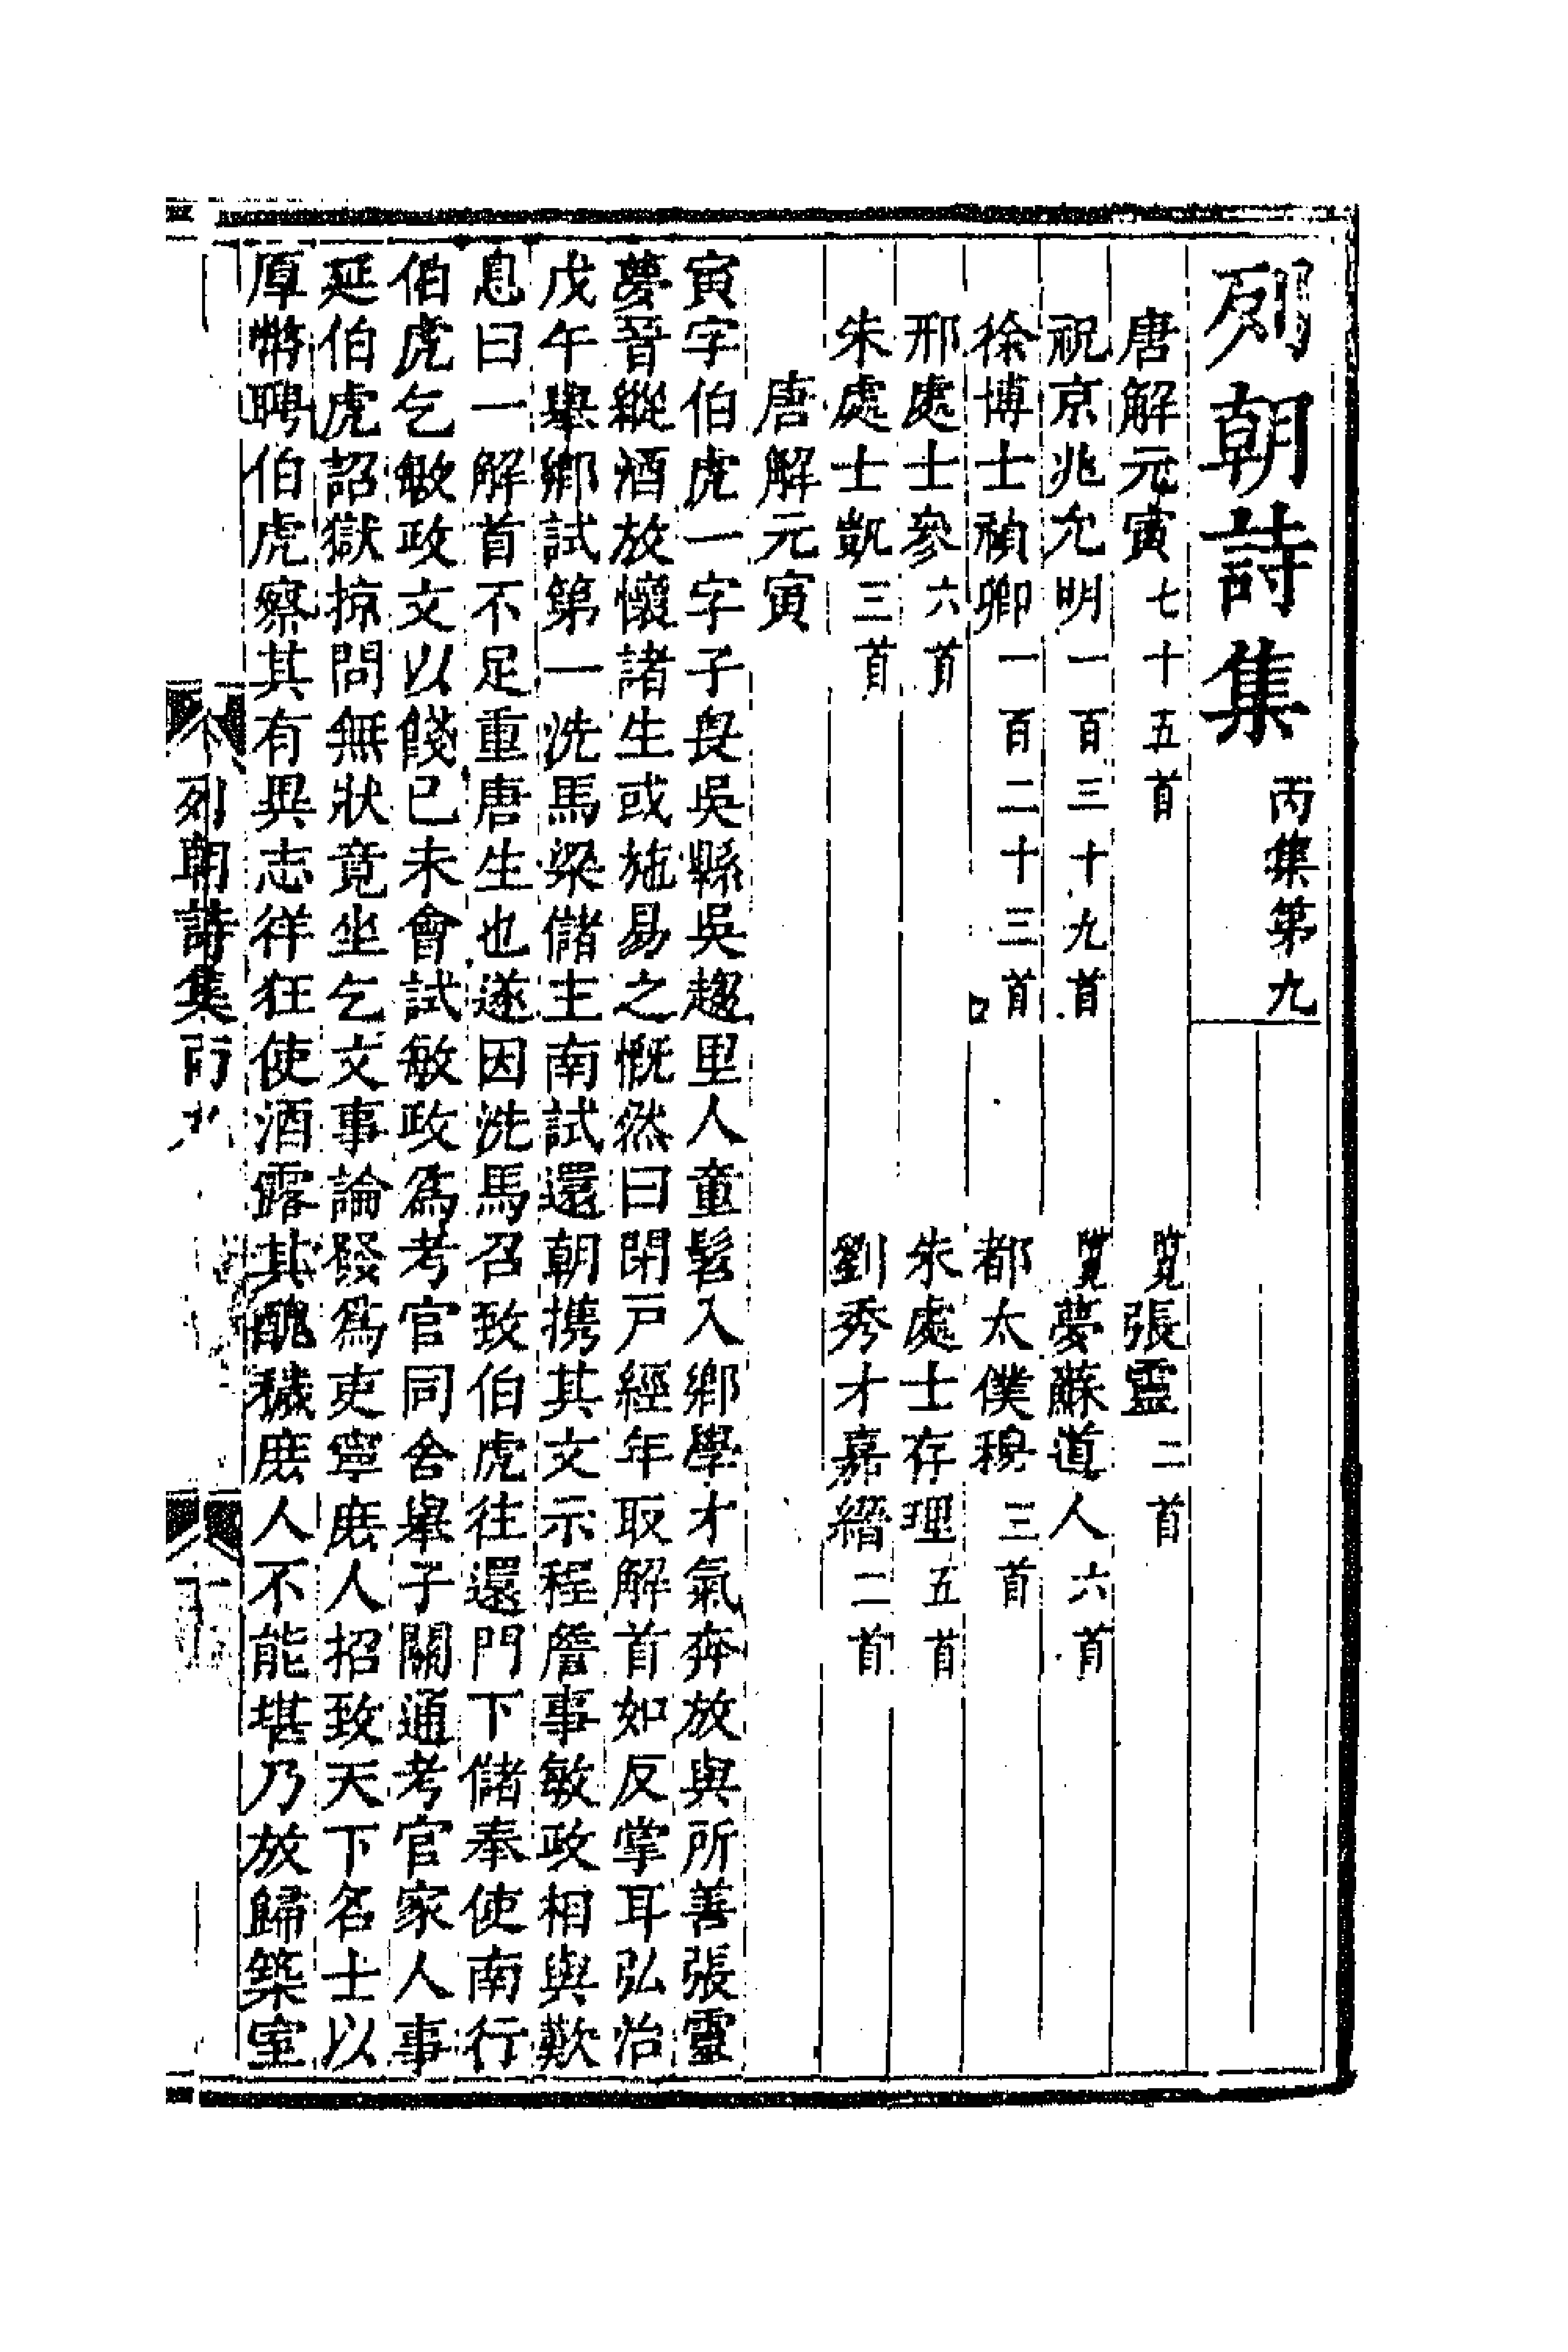 列朝詩集 丙集第九
唐解元寅七十五首 附見張靈二首
祝京兆允明一百三十九首 附見夢蘇道人六首
徐博士禎卿一百二十三首 都太僕穆三首
邢處士參六首 朱處士存理五首
朱處士凱三首 劉秀才嘉䋎二首
唐解元寅
寅字伯虎一字子畏吳縣吳趨里人童髫入鄉學才氣奔放與所善張靈
夢晉縱酒放懷諸生或施易之慨然曰閉戶經年取解首如反掌耳弘治
戊午舉鄉試第一洗馬梁儲主南試還朝攜其文示程詹事敏政相與歎
息曰一解首不足重唐生也遂因洗馬召致伯虎往還門下儲奉使南行
伯虎乞敏政文以餞已未會試敏政為考官同舍舉子關通考官家人事
延伯虎詔獄掠問無狀竟坐乞文事論發為吏寧庶人招致天下名士以
厚幣聘伯虎察其有異志佯狂使酒露其醜穢庶人不能堪乃放歸築室
列朝詩集丙九